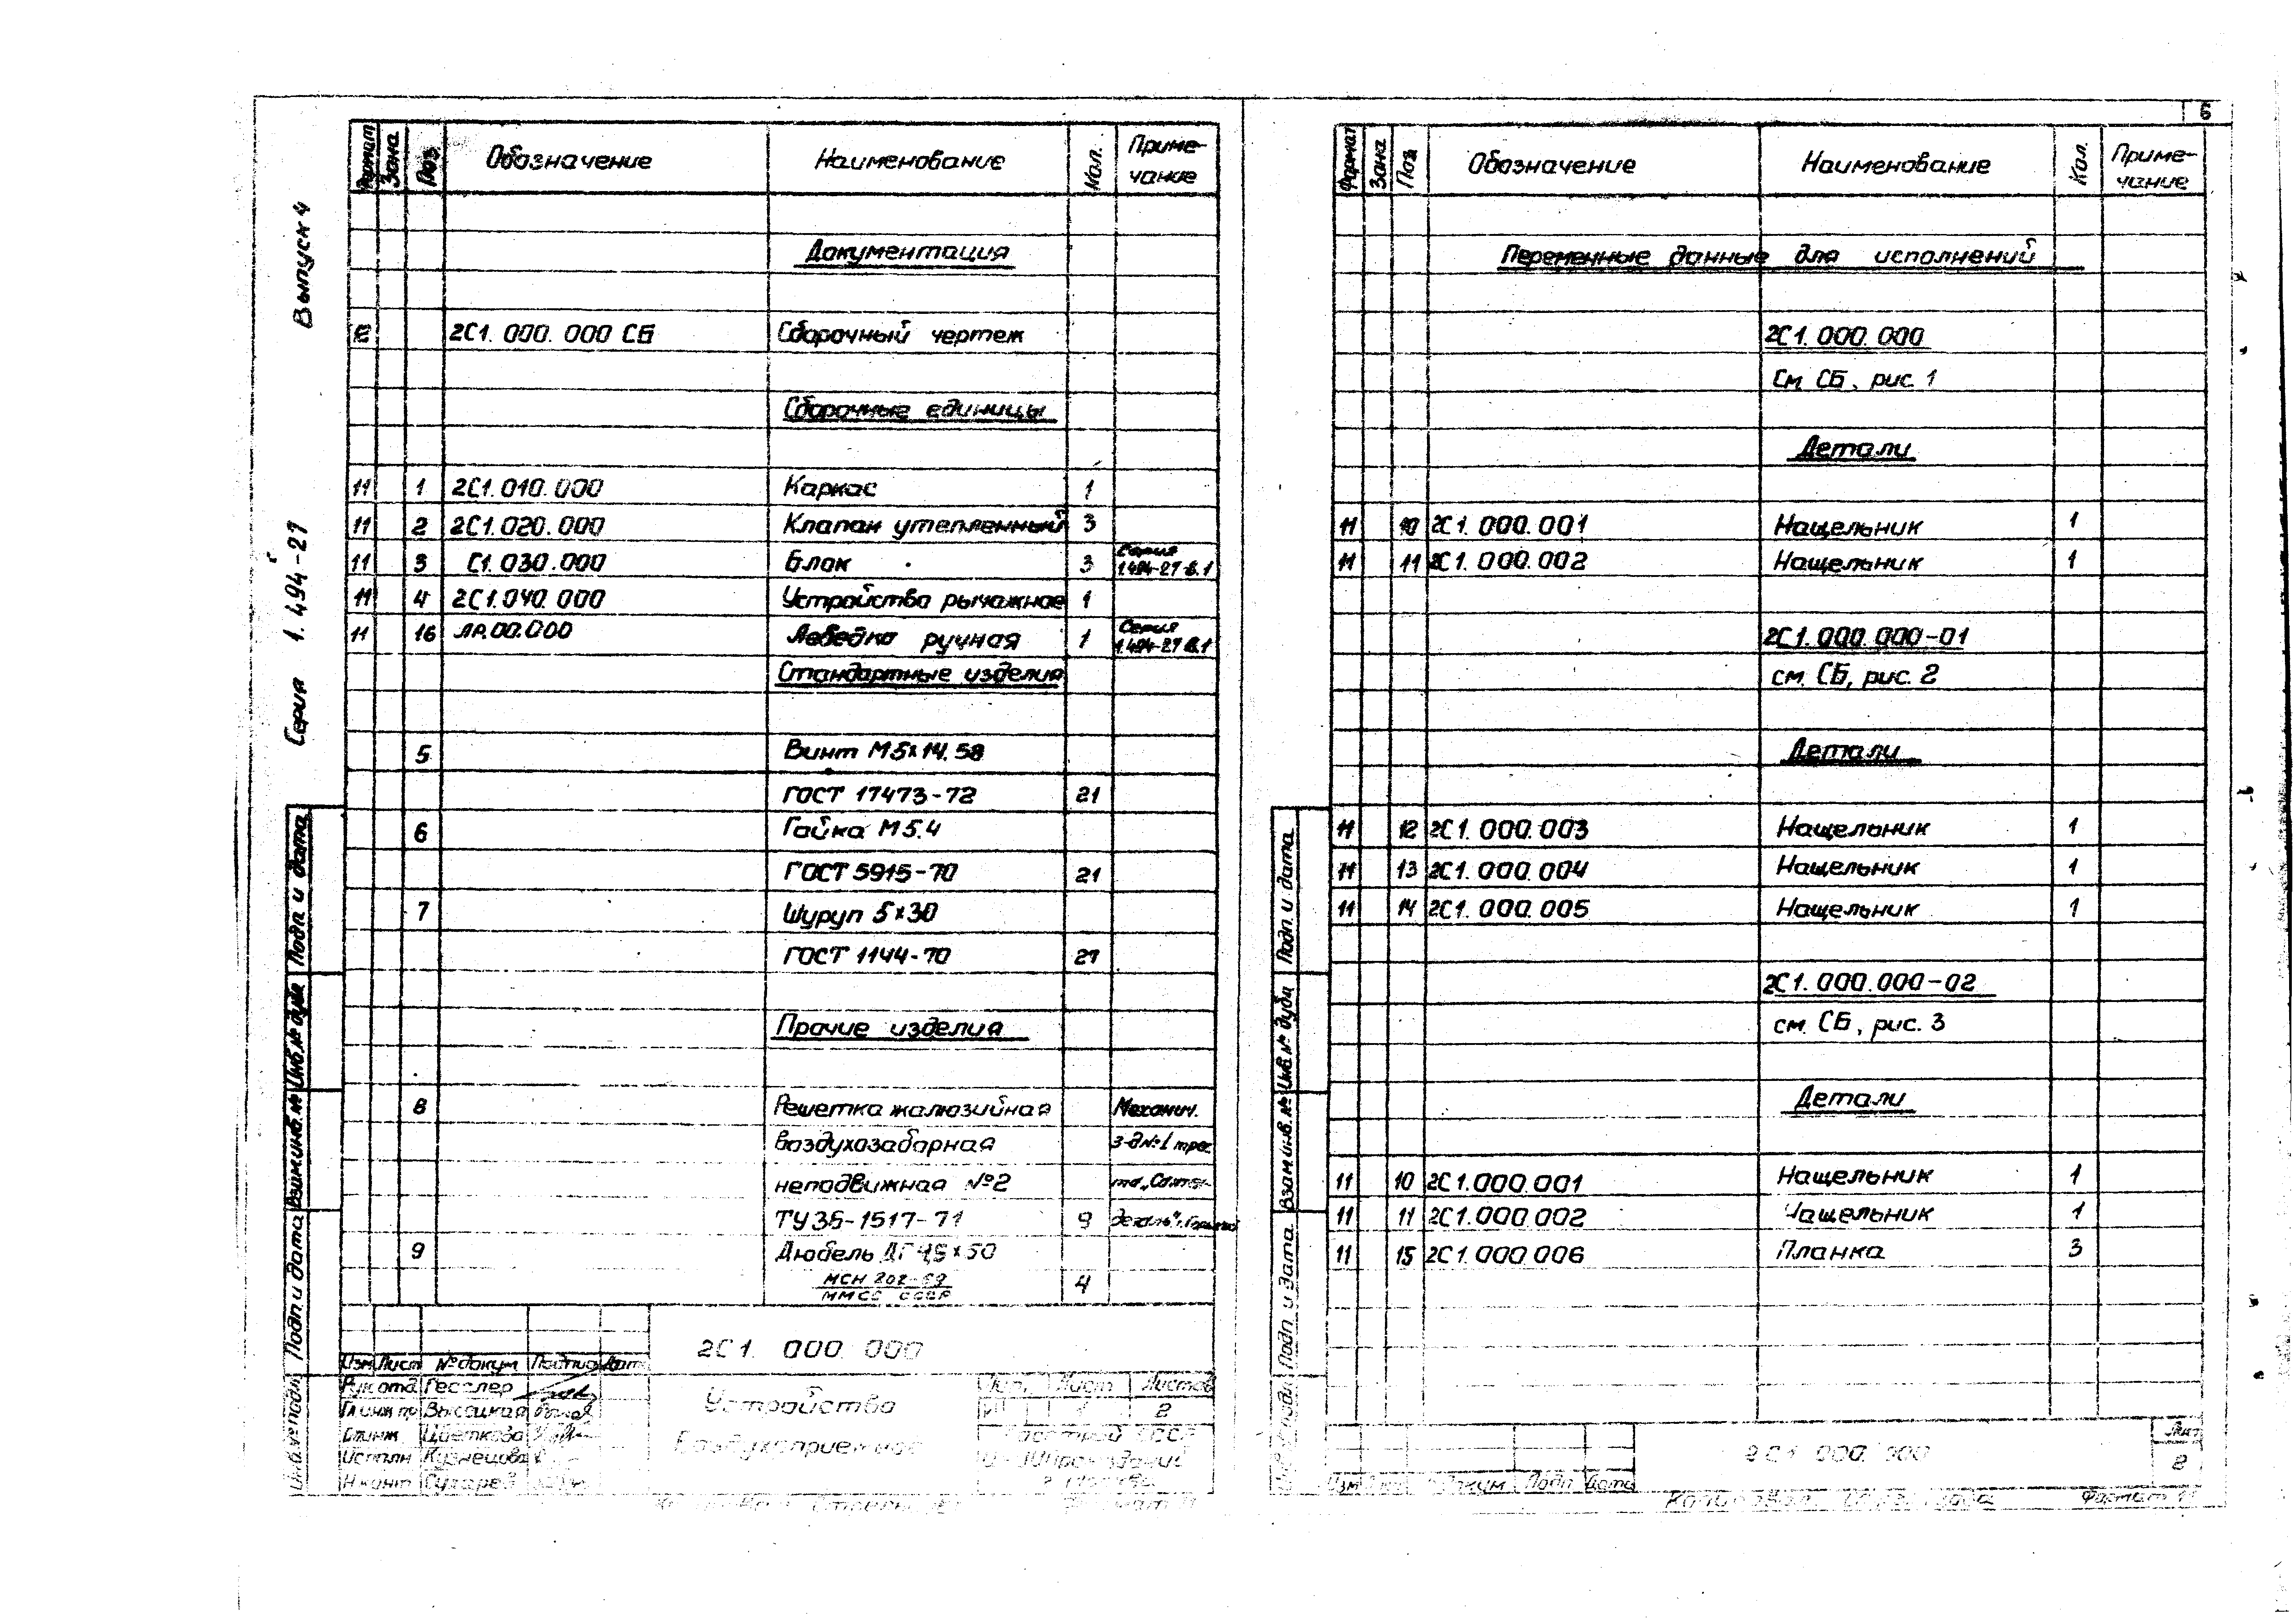 Серия 1.494-27 Выпуск 4
6
Формат Зона Поз. Обозначение Наименование Кол. Приме-
чание
Документация
12 2С1.000.000 СБ Сборочный чертеж
Сборочные единицы
11 1 2С1.010.000 Каркас 1
11 2 2С1.020.000 Клапан утепленный 3
11 3 С1.030.000 Блок 3 Серия
1.494-27 в.1
11 4 2С1.040.000 Устройство рычажное 1
11 16 ЛР.00.000 Лебедка ручная 1 Серия
1.494-27 в.1
Стандартные изделия
5 Винт М5х14.58
ГОСТ 17473-72 21
6 Гайка М5.4
ГОСТ 5915-70 21
7 Шуруп 5х30
ГОСТ 1144-70 27
Прочие изделия
8 Решетка жалюзийная Механич.
воздухозаборная з-д №1 трес
неподвижная №2 та „Сантех-
ТУ36-1517-71 9
9 Дюбель ДГ 4,5х50
МСН 202-69
ММСС СССР 4
Подп и дата
Инв.№ дубл
Взам.инв.№
Подп и дата
Инв.№ подл
Изм Лист № докум Подпись Дата
Рук отд Гесслер
Гл инж пр Высоцкая
Ст инж Цветкова
Исполн Кузнецова
Н конт Сухарев
2С1.000.000
Устройство
Воздухоприемное
Лит. Лист Листов
1 2
Госстрой СССР
ЦНИИпромзданий
г. Москва
Формат 11
Формат Зона Поз Обозначение Наименование Кол. Приме-
чание
Переменные данные для исполнений
2С1.000.000
См. СБ, рис. 1
Детали
11 10 2С1.000.001 Нащельник 1
11 11 2С1.000.002 Нащельник 1
2С1.000.000-01
см. СБ, рис. 2
Детали
11 12 2С1.000.003 Нащельник 1
11 13 2С1.000.004 Нащельник 1
11 14 2С1.000.005 Нащельник 1
2С1.000.000-02
см. СБ, рис. 3
Детали
11 10 2С1.000.001 Нащельник 1
11 11 2С1.000.002 Нащельник 1
11 15 2С1.000.006 Планка 3
Подп. и дата
Инв.№ дубл
Взам инв.№
Подп и дата
Изм Лист № докум Подп Дата
2С1.000.000
Лист
2
Копировал
Формат 11